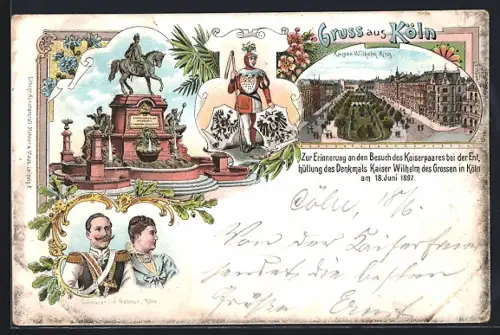 Gruss aus Köln
Kaiser-Wilhelm-Ring.
Zur Erinnerung an den Besuch des Kaiserpaares bei der Ent,
hüllung des Denkmals Kaiser Wilhelm des Grossen in Köln
am 18. Juni 1897.
Cöln, 18/6.
Von der Kaiserfeier
sendet die besten
Grüße Ernst